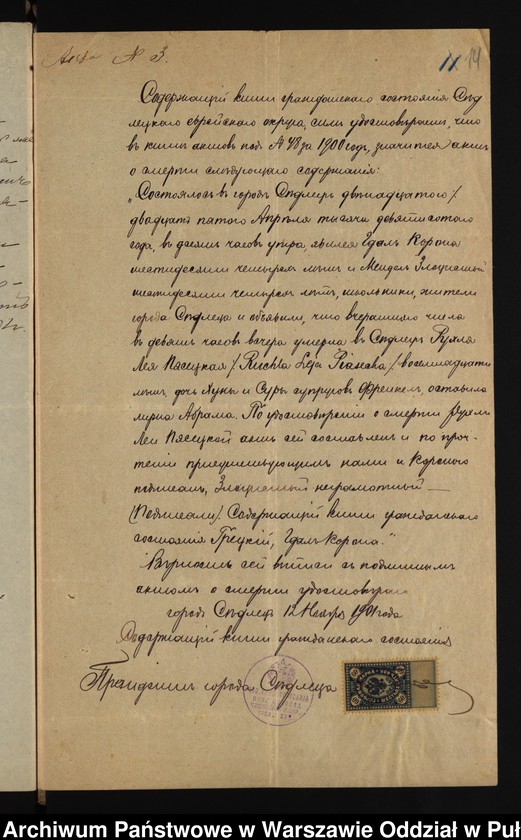 Актъ N 3.
14
Содержащій книги гражданскаго состоянія Сѣд
лецкаго еврейскаго округа, симъ удостовѣряю, что
въ книгѣ актовъ подъ N 48 за 1900 годъ, значится актъ
о смерти слѣдующаго содержанія:
„Состоялось въ городѣ Сѣдлецѣ двѣнадцатаго /
двадцать пятаго Апрѣля тысяча девятисотаго
года, въ десять часовъ утра, явился Гдаль Корона
шестидесяти четырехъ лѣтъ и Мендель
шестидесяти четырехъ лѣтъ, школьники, жители
города Сѣдлеца и объявили, что вчерашняго числа
въ девять часовъ вечера умерла въ Сѣдлецѣ Рухля
Лея Пясецкая / Ruchla Leja Piasecka / восемнадцати
лѣтъ, дочь и Суры супруговъ Френкель, оставила
мужа Абрама. По удостовѣреніи о смерти Рухли
Леи Пясецкой актъ сей составленъ и по про-
чтеніи присутствующимъ нами и Короною
подписанъ, неграмотный —
(Подписали) Содержащій книги гражданскаго
состоянія Грецкій, Гдаль Корона."
Вѣрность сей выписи съ подлиннымъ
актомъ о смерти удостовѣряю
городъ Сѣдлецъ 12 Ноября 1901 года
Содержащій книги гражданскаго состоянія
Президентъ города Сѣдлеца
Archiwum Państwowe w Warszawie Oddział w Puł